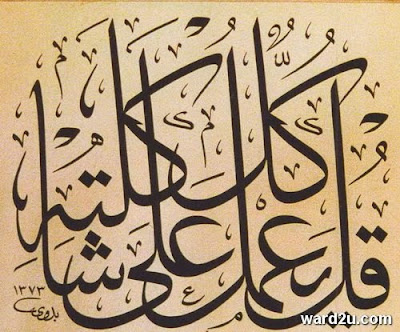 قل كل يعمل على شاكلته
١٣٧٣
بدوي
ward2u.com